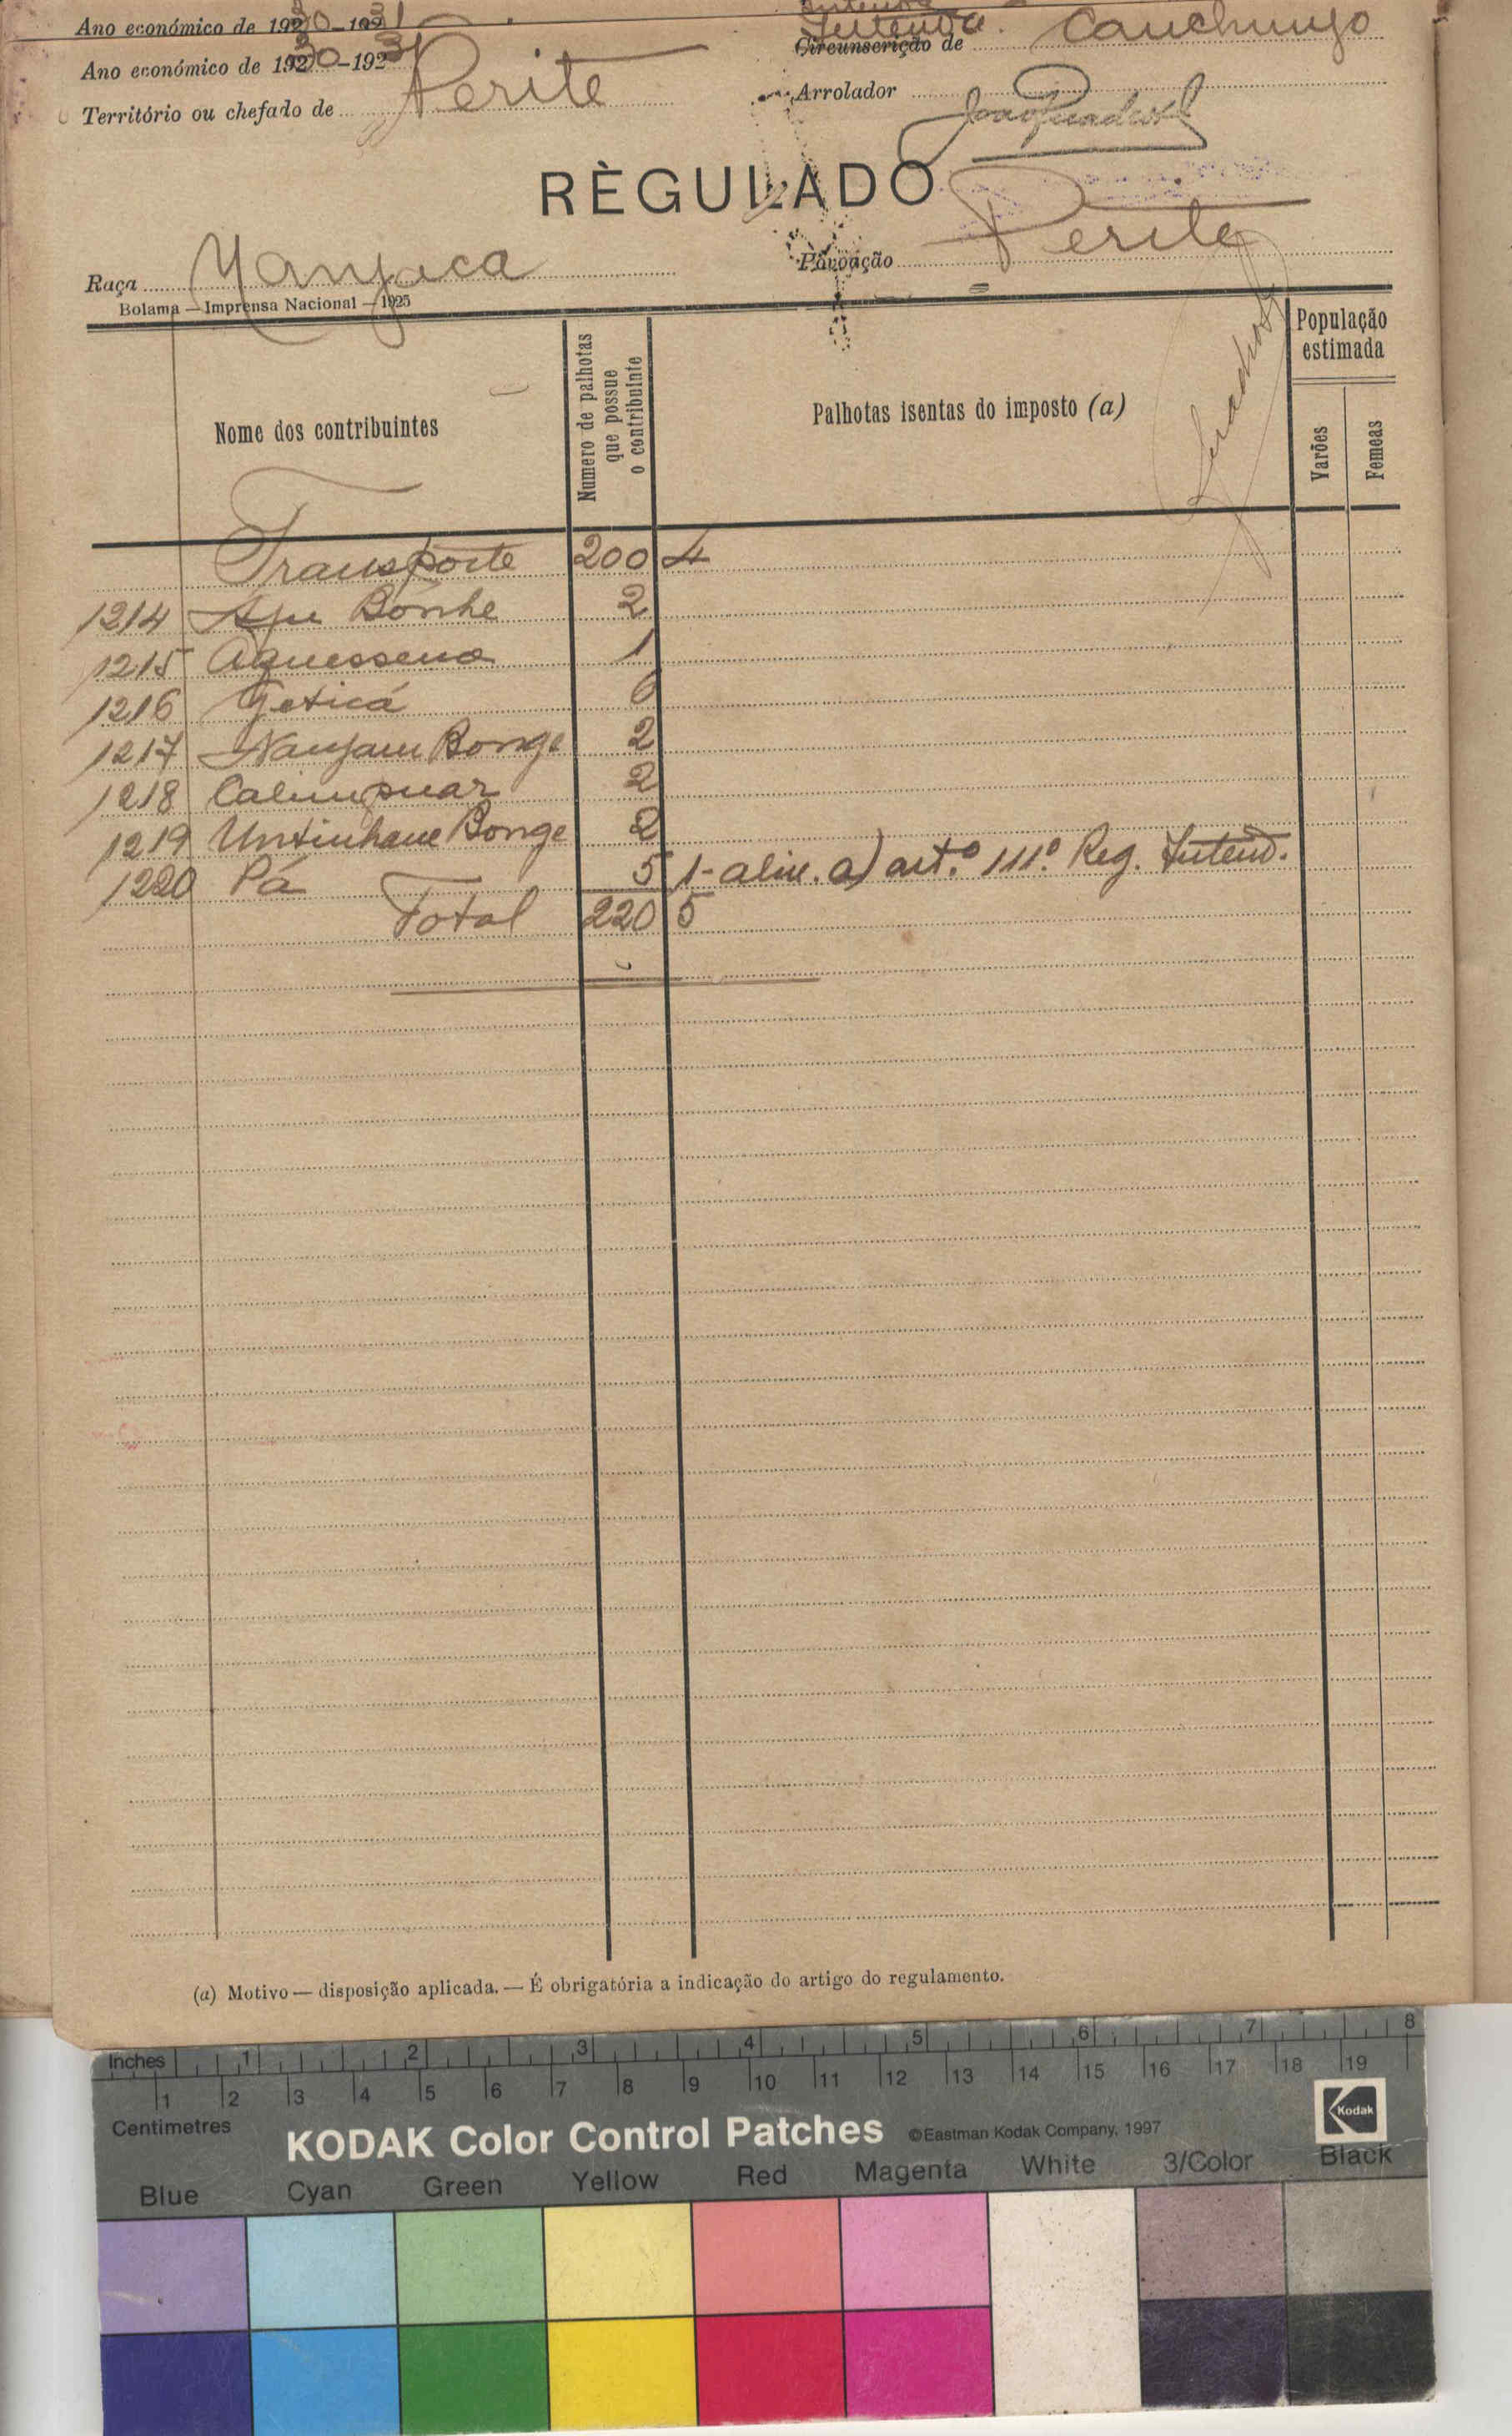 Ano económico de 1930-1931
Intendª.
Circunscrição de Canchungo
Ano económico de 1930-1931
Território ou chefado de Perite
Arrolador
RÈGULADO
Raça Manjaca
Povoação Perite
Bolama — Imprensa Nacional — 1925
Nome dos contribuintes
Numero de palhotas que possue o contribuinte
Palhotas isentas do imposto (a)
População estimada
Varões
Femeas
Transporte 200 4
1214 Apu Bonhe 2
1215 Aquessena 1
1216 Getică 6
1217 Nanjam Bonge 2
1218 Calimpuar 2
1219 Untinhane Bonge 2
1220 Pá 5 1- alin. a) artº 111º. Reg. Intend.
Total 220 5
(a) Motivo — disposição aplicada. — É obrigatória a indicação do artigo do regulamento.
Inches 1 2 3 4 5 6 7 8
1 2 3 4 5 6 7 8 9 10 11 12 13 14 15 16 17 18 19
Centimetres
KODAK Color Control Patches ©Eastman Kodak Company, 1997 Kodak
Blue Cyan Green Yellow Red Magenta White 3/Color Black